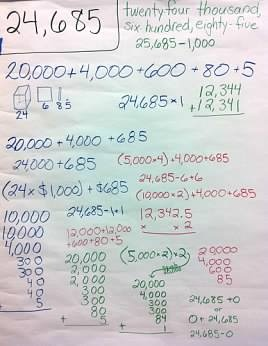 24,685
twenty four thousand,
six hundred, eighty-five
25,685-1,000
20,000+4,000+600+80+5
24 6 85
24,685×1
12,344
+12,341
20,000+4,000+685
24,000+685
(5,000×4)+4,000+685
24,685-6+6
(24×$1,000)+$685
(10,000×2)+4,000+685
10,000
10,000
4,000
300
300
40
40
+ 5
24,685-1+1
12,000+12,000
+600+80+5
20,000
2,000
2,000
300
300
80
+ 5
12,342.5
× 2
(5,000×2)×2
20,000
4,000
300
300
84
+ 1
20000
4,000
600
85
24,685+0
or
0+24,685
24,685-0